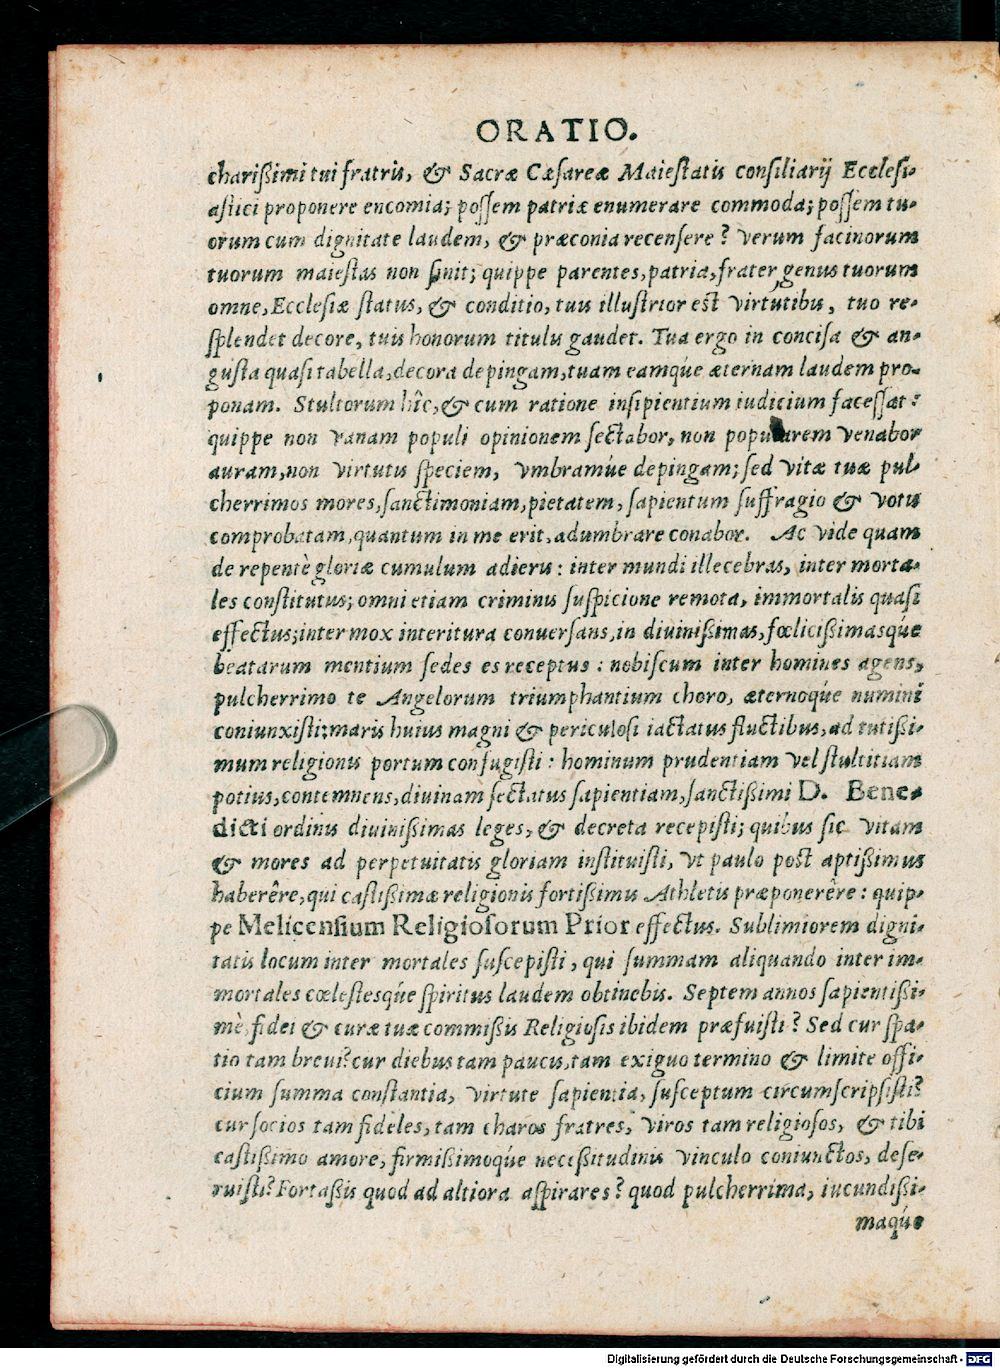 ORATIO.
charißimi tui fratris, & Sacræ Cæsareæ Maiestatis consiliarij Ecclesi-
astici proponere encomia; possem patriæ enumerare commoda; possem tu-
orum cum dignitate laudem, & præconia recensere? Verum facinorum
tuorum maiestas non sinit; quippe parentes, patria, frater, genus tuorum
omne, Ecclesiæ status, & conditio, tuis illustrior est virtutibus, tuo re-
splendet decore, tuis honorum titulis gaudet. Tua ergo in concisa & an-
gusta quasi tabella, decora depingam, tuam eamque æternam laudem pro-
ponam. Stultorum hîc, & cum ratione insipientium iudicium facessat:
quippe non vanam populi opinionem sectabor, non popularem venabor
auram, non virtutis speciem, vmbramúe depingam; sed vitæ tuæ pul-
cherrimos mores, sanctimoniam, pietatem, sapientum suffragio & votis
comprobatam, quantum in me erit, adumbrare conabor. Ac vide quam
de repentè gloriæ cumulum adieris: inter mundi illecebras, inter morta-
les constitutus; omni etiam criminis suspicione remota, immortalis quasi
effectus; inter mox interitura conuersans, in diuinißimas, fœlicißimasque
beatarum mentium sedes es receptus: nobiscum inter homines agens,
pulcherrimo te Angelorum triumphantium choro, æternoque numini
coniunxisti: maris huius magni & periculosi iactatus fluctibus, ad tutißi-
mum religionis portum confugisti: hominum prudentiam vel stultitiam
potius, contemnens, diuinam sectatus sapientiam, sanctißimi D. Bene-
dicti ordinis diuinißimas leges, & decreta recepisti; quibus sic vitam
& mores ad perpetuitatis gloriam instituisti, vt paulo post aptißimus
haberêre, qui castißimæ religionis fortißimis Athletis præponerêre: quip-
pe Melicensium Religiosorum Prior effectus. Sublimiorem digni-
tatis locum inter mortales suscepisti, qui summam aliquando inter im-
mortales cœlestesque spiritus laudem obtinebis. Septem annos sapientißi-
mè, fidei & curæ tuæ commißis Religiosis ibidem præfuisti? Sed cur spa-
tio tam breui? cur diebus tam paucis, tam exiguo termino & limite offi-
cium summa constantia, virtute sapientia, susceptum circumscripsisti?
cur socios tam fideles, tam charos fratres, viros tam religiosos, & tibi
castißimo amore, firmißimoque necessitudinis vinculo coniunctos, dese-
ruisti? Fortaßis quod ad altiora aspirares? quod pulcherrima, iucundißi-
maque
Digitalisierung gefördert durch die Deutsche Forschungsgemeinschaft - DFG